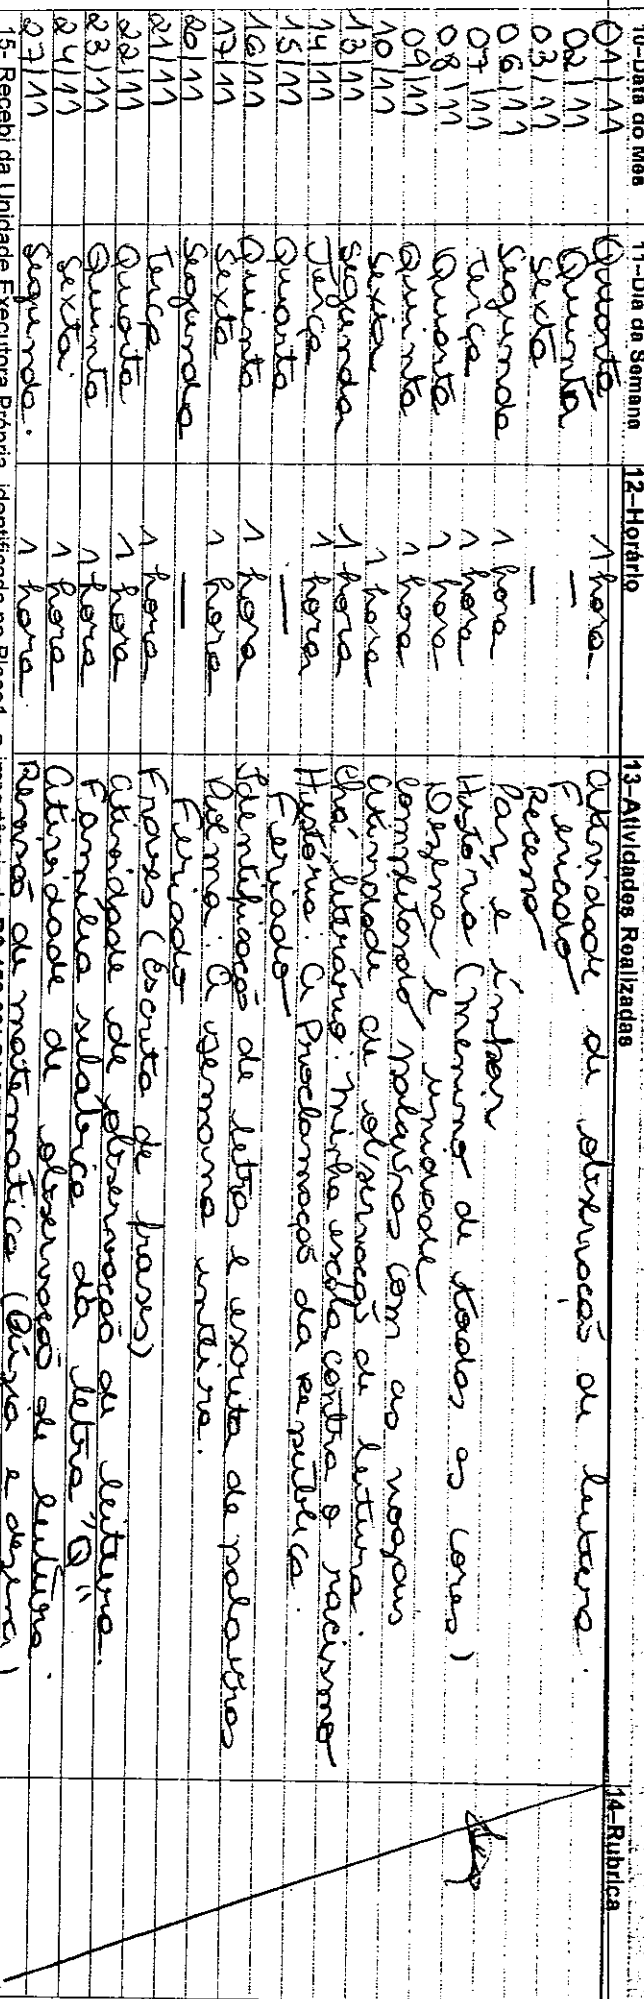 10-Data do Mês 11-Dia da Semana 12-Horário 13-Atividades Realizadas 14-Rubrica
01/11 Quarta 1 hora Atividade de observação de leitura.
02/11 Quinta — Feriado
03/11 Sexta — Recesso
06/11 Segunda 1 hora Par e ímpar
07/11 Terça 1 hora História (menino de todas as cores)
08/11 Quarta 1 hora Dezena e unidade
09/11 Quinta 1 hora Completando palavras com as vogais
10/11 Sexta 1 hora Atividade de observação de leitura.
13/11 Segunda 1 hora Chá literário: Minha escola contra o racismo
14/11 Terça 1 hora História: A Proclamação da República.
15/11 Quarta — Feriado
16/11 Quinta 1 hora Identificação de letras e escrita de palavras
17/11 Sexta 1 hora Poema: A semana inteira.
20/11 Segunda — Feriado
21/11 Terça 1 hora Frases (escrita de frases)
22/11 Quarta 1 hora Atividade de observação de leitura.
23/11 Quinta 1 hora Família silábica da letra "Q"
24/11 Sexta 1 hora Atividade de observação de leitura.
27/11 Segunda. 1 hora Revisão de matemática (Dúzia e dezena)
15- Recebi da Unidade Executora Própria, identificada no Bloco1, a importância de R$